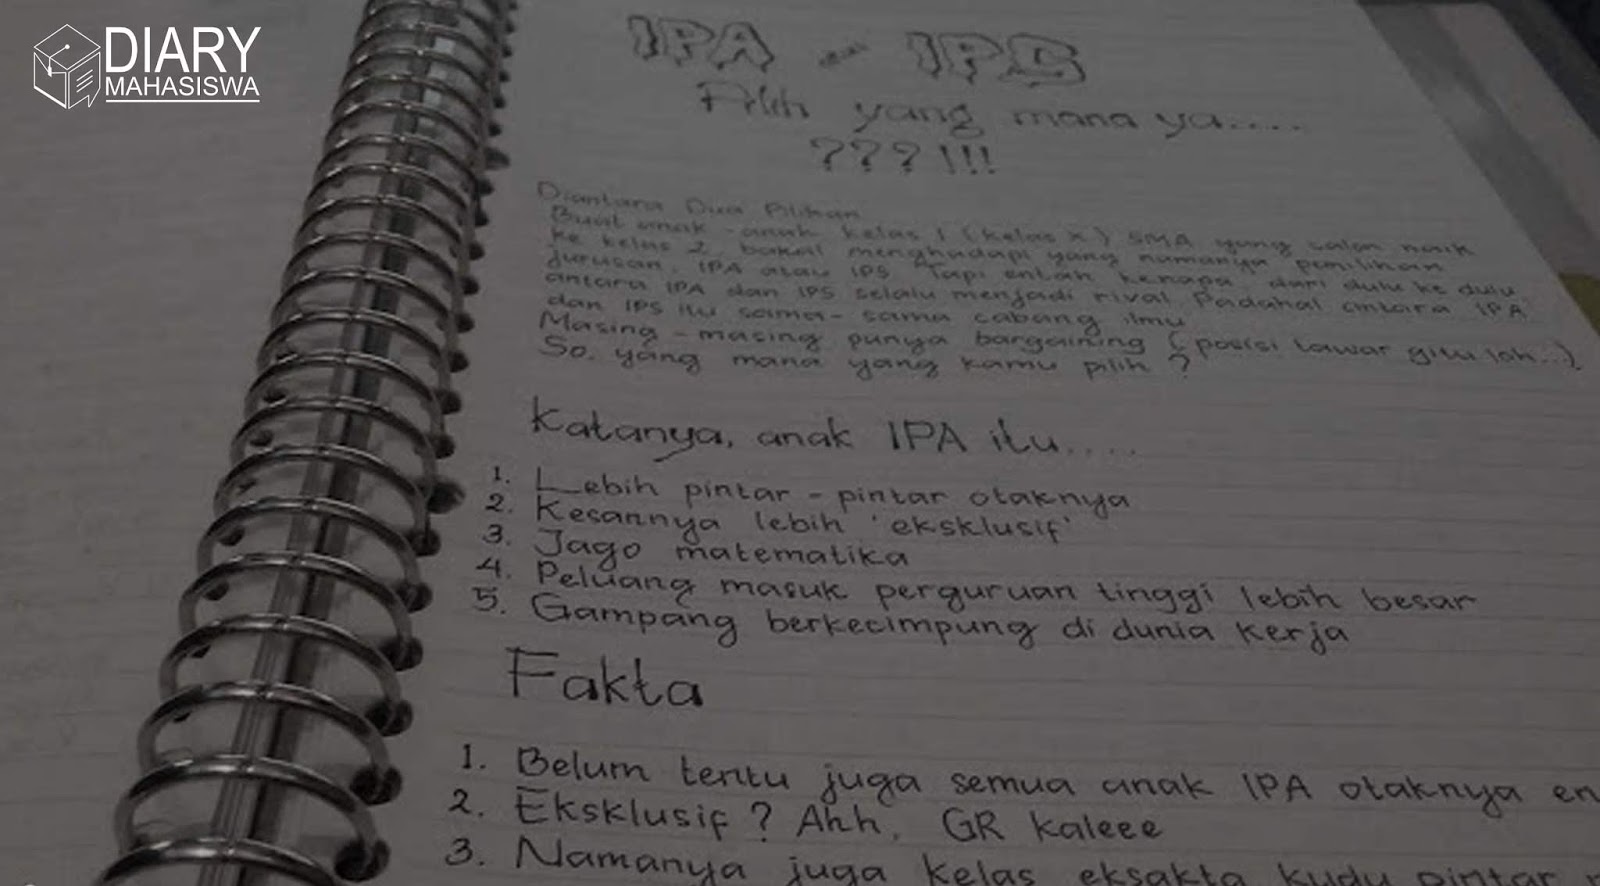 DIARY
MAHASISWA
IPA - IPS
Pilih yang mana ya.....
???!!!
Diantara Dua Pilihan
Buat anak-anak kelas 1 (kelas X) SMA yang calon naik
ke kelas 2, bakal menghadapi yang namanya pemilihan
jurusan, IPA atau IPS. Tapi entah kenapa dari dulu ke dulu,
antara IPA dan IPS selalu menjadi rival. Padahal antara IPA
dan IPS itu sama-sama cabang ilmu
Masing-masing punya bargaining (posisi tawar gitu loh...)
So, yang mana yang kamu pilih?
Katanya, anak IPA itu.....
1. Lebih pintar-pintar otaknya
2. Kesannya lebih 'eksklusif'
3. Jago matematika
4. Peluang masuk perguruan tinggi lebih besar
5. Gampang berkecimpung di dunia kerja
Fakta
1. Belum tentu juga semua anak IPA otaknya en
2. Eksklusif? Ahh, GR kaleee
3. Namanya juga kelas eksakta kudu pintar